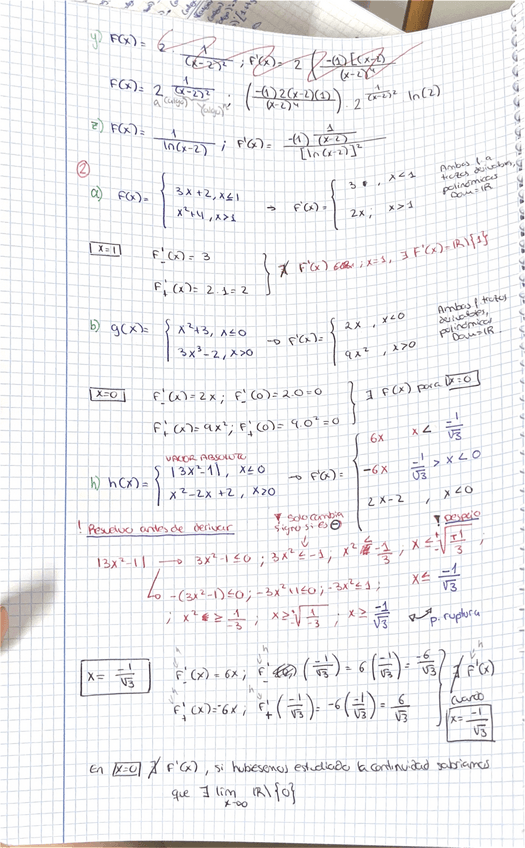 y) F(x) = 2 1/(x-2)² ; F'(x) = 2 (-(1)[(x-2)/(x-2)⁴
F(x) = 2^(1/(x-2)²) ; (-(1)2(x-2)(1)/(x-2)⁴) · 2^(1/(x-2)²) ln(2)
z) F(x) = 1/ln(x-2) ; F'(x) = -(1) 1/(x-2) / [ln(x-2)]²
②
a) F(x) = { 3x+2, x≤1 → F'(x) = { 3 , x<1
x²+4, x>1 2x, x>1
Ambas f. a trozos derivables, polinómicas Dom=IR
x=1 F'₋(x) = 3
F'₊(x) = 2·1 = 2
∄ F'(x) ; x=1, ∃ F'(x) = IR\{1}
b) g(x) = { x²+3, x≤0 → F'(x) = { 2x , x<0
3x³-2, x>0 9x² , x>0
Ambas f. trozos derivables, polinómicas Dom=IR
x=0 F'₋(x) = 2x ; F'₋(0) = 2·0 = 0
F'₊(x) = 9x² ; F'₊(0) = 9·0² = 0
∃ F(x) para x=0
VALOR ABSOLUTO
h) h(x) = { |3x²-1|, x≤0 → F'(x) = { 6x x < -1/√3
x²-2x+2, x>0 -6x -1/√3 > x < 0
2x-2 , x<0
! Resolvo antes de derivar
solo cambia signo si es ⊖
! despejo
|3x²-1| → 3x²-1≤0 ; 3x²≤-1, x² ≤ -1/3 , x≤ √(±1/3) ,
x≤ -1/√3
-(3x²-1)≤0; -3x²+1≤0; -3x²≤1;
; x² ≥ 1/-3 ; x≥ √(1/-3) ; x≥ -1/√3 p. ruptura
x = -1/√3 F'₋(x) = 6x ; F'₋ (-1/√3) = 6(-1/√3) = -6/√3
F'₊(x) = -6x ; F'₊ (-1/√3) = -6(-1/√3) = 6/√3
∄ F'(x) cuando x = -1/√3
h
En x=0 ∄ F'(x), si hubésemos estudiado la continuidad sabríamos
que ∃ lim x→∞ IR\{0}